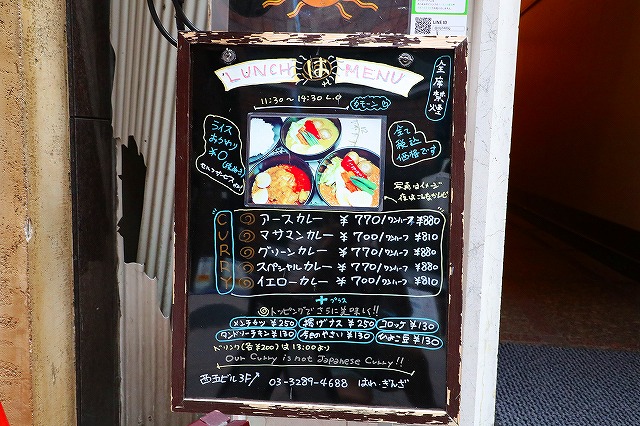 LINE ID
LUNCH は MENU
全席禁煙
11:30〜14:30 L.O
ライス
おかわり
¥0
セルフサービスです
全て
税込
価格です
写真はイメージ
CURRY
アースカレー ¥770/ワンハーフ ¥880
マサマンカレー ¥700/ワンハーフ ¥810
グリーンカレー ¥770/ワンハーフ ¥880
スペシャルカレー ¥770/ワンハーフ ¥880
イエローカレー ¥700/ワンハーフ ¥810
+プラス
◎トッピングでさらに美味しく!!
メンチカツ ¥250 揚げナス ¥250 コロッケ ¥130
タンドリーチキン ¥130 今日のやさい ¥130 ひよこ豆 ¥130
ドリンク(各¥200)は13:00より
Our Curry is not Japanese Curry!!
西五ビル3F↗ 03-3289-4688 はれ・ぎんざ